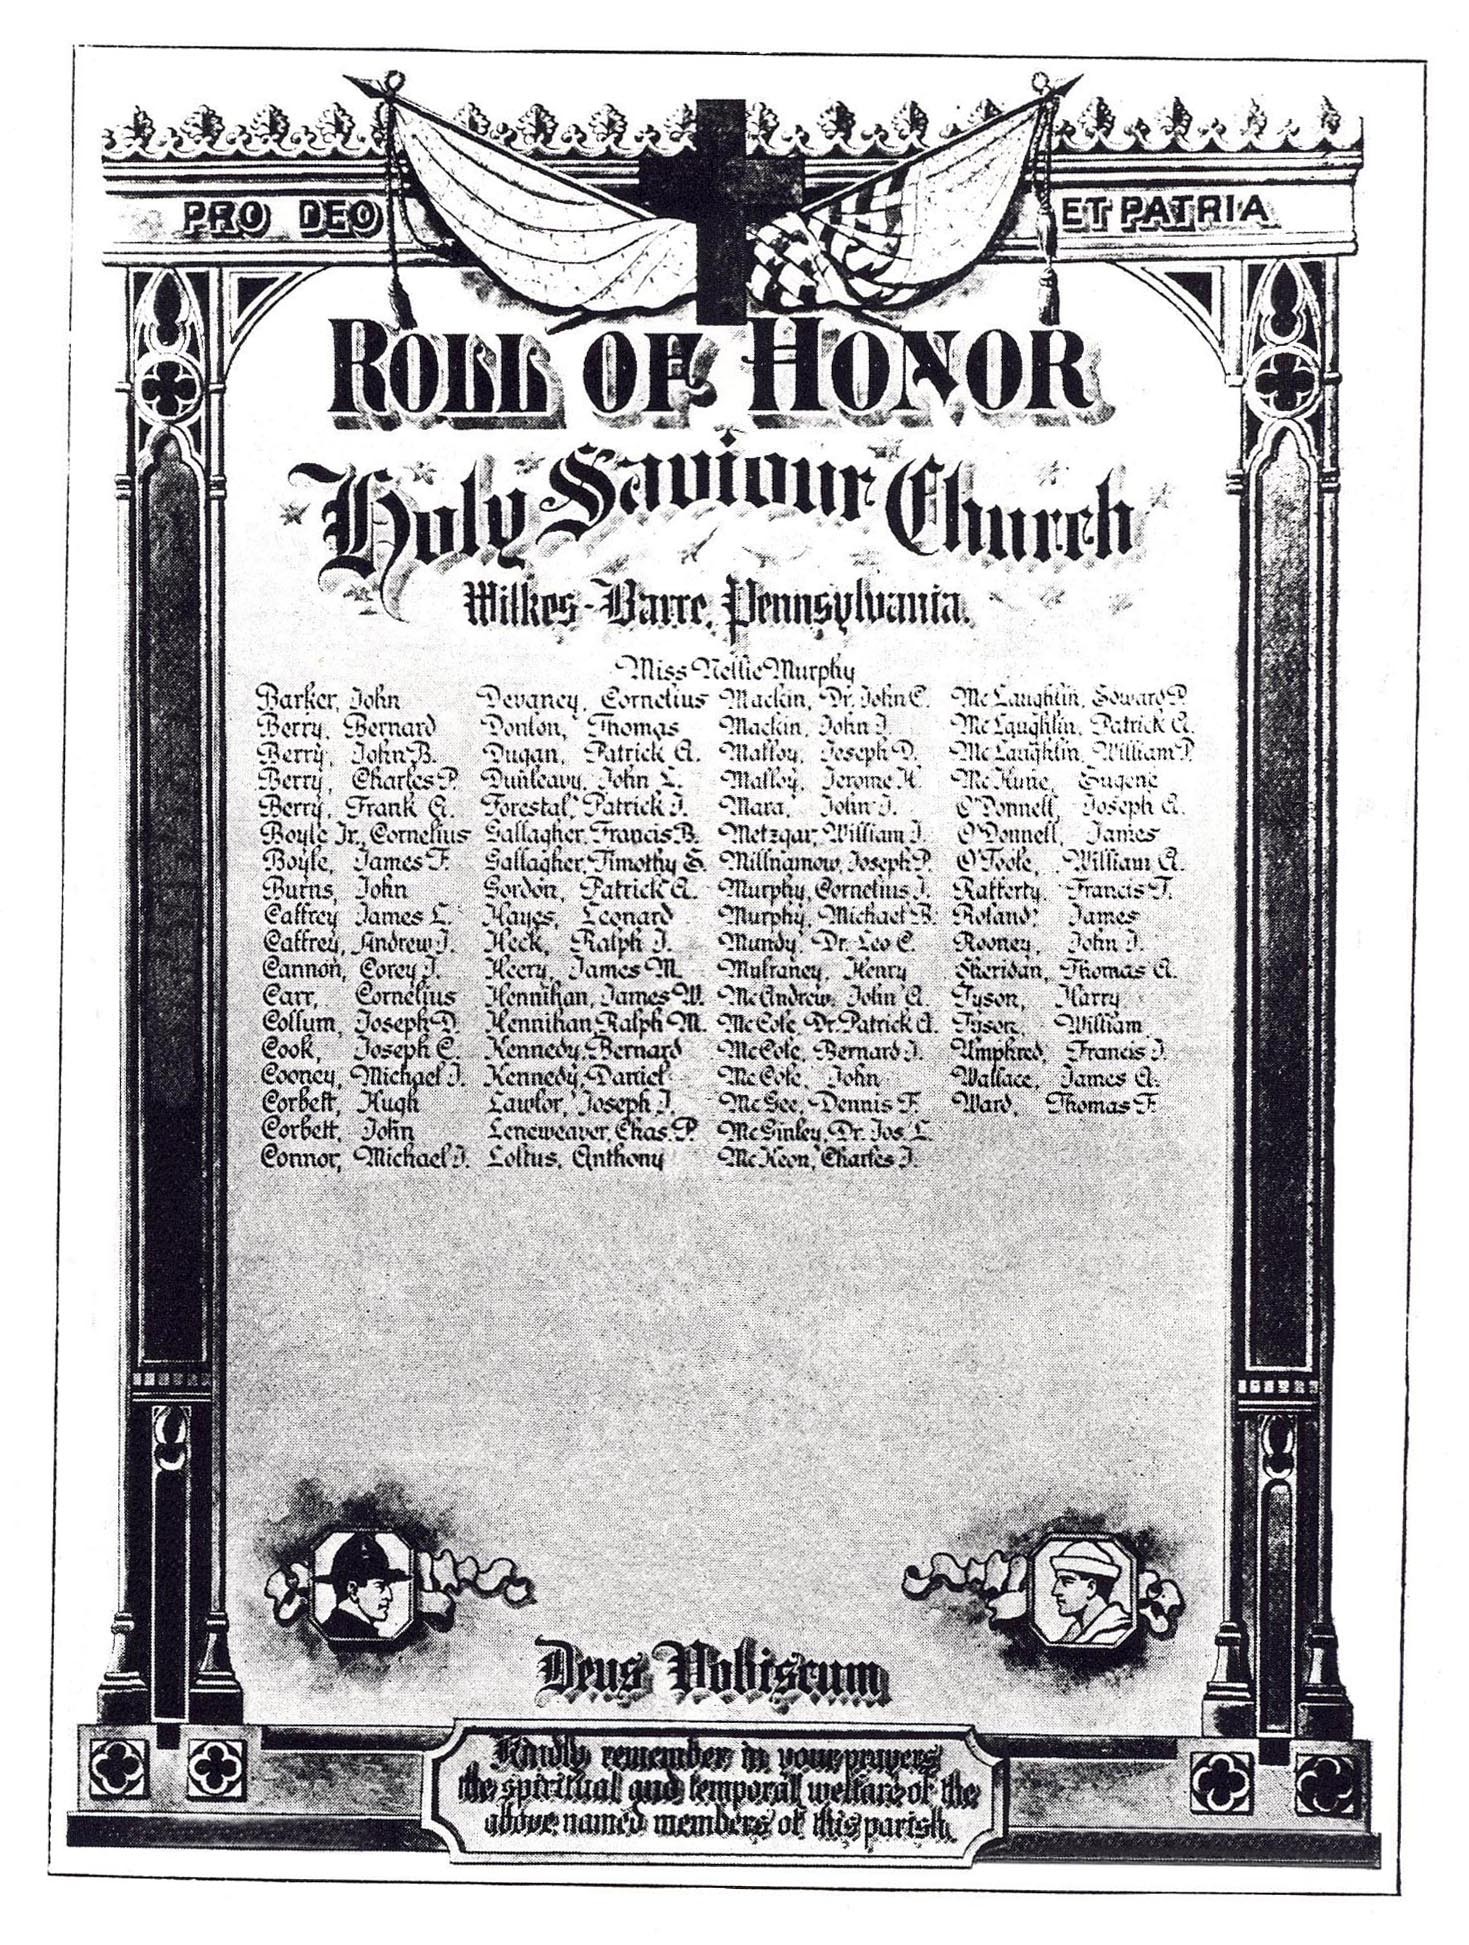 PRO DEO ET PATRIA
ROLL OF HONOR
Holy Saviour Church
Wilkes-Barre, Pennsylvania.
Miss Nellie Murphy
Barker, John
Berry, Bernard
Berry, John B.
Berry, Charles P.
Berry, Frank A.
Boyle Jr., Cornelius
Boyle, James F.
Burns, John
Caffrey James L.
Caffrey, Andrew J.
Cannon, Corey J.
Carr, Cornelius
Collum, Joseph D.
Cook, Joseph C.
Cooney, Michael J.
Corbett, Hugh
Corbett, John
Connor, Michael J.
Devaney, Cornelius
Donlon, Thomas
Dugan, Patrick A.
Dunleavy, John L.
Forestal, Patrick J.
Gallagher, Francis B.
Gallagher, Timothy S.
Gordon, Patrick A.
Hayes, Leonard
Heck, Ralph J.
Heery, James M.
Hennihan, James W.
Hennihan, Ralph M.
Kennedy, Bernard
Kennedy, Daniel
Lawlor, Joseph J.
Leneweaver, Chas. P.
Loftus, Anthony
Mackin, Dr. John C.
Mackin, John J.
Malloy, Joseph D.
Malloy, Jerome H.
Mara, John J.
Metzgar, William J.
Millnamow, Joseph P.
Murphy, Cornelius J.
Murphy, Michael B.
Mundy, Dr. Leo C.
Mulraney, Henry
McAndrew, John A.
McCole, Dr. Patrick A.
McCole, Bernard J.
McCole, John
McGee, Dennis F.
McGinley, Dr. Jos L.
McKeon, Charles J.
McLaughlin, Edward P.
McLaughlin, Patrick A.
McLaughlin, William P.
McHune, Eugene
O'Donnell, Joseph A.
O'Donnell, James
O'Toole, William A.
Rafferty, Francis T.
Roland, James
Rooney, John J.
Sheridan, Thomas A.
Tyson, Harry
Tyson, William
Umphred, Francis J.
Wallace, James A.
Ward, Thomas F.
Deus Vobiscum
Kindly remember in your prayers
the spiritual and temporal welfare of the
above named members of this parish.